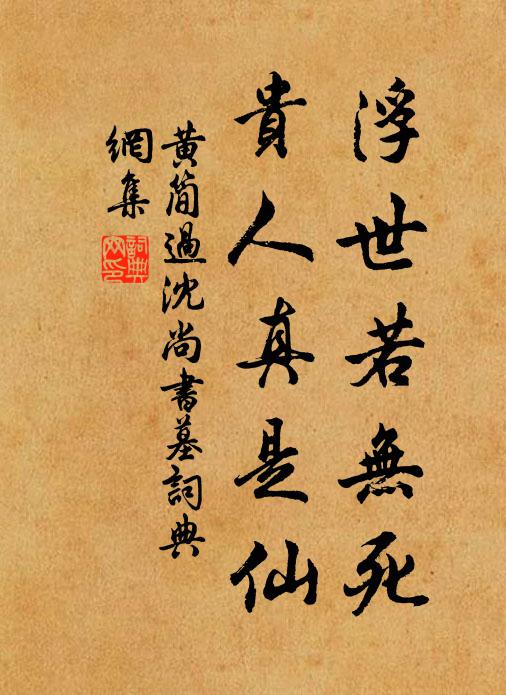 浮世若無死
貴人真是仙
黃簡過沈尚書墓詞典
網集
詞典網印